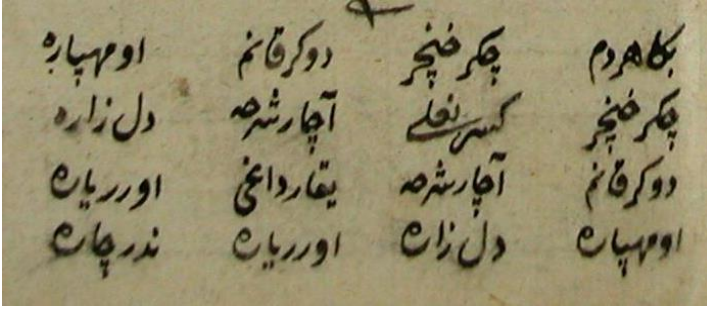 بكا هردم چكر خنچر دوكر قانم او مهپاره
چكر خنچر كسر نعلے آچار شرحه دل زاره
دوكر قانم آچار شرحه يقار داغى اورر ياره
او مهپاره دل زاره اورر ياره ندر چاره